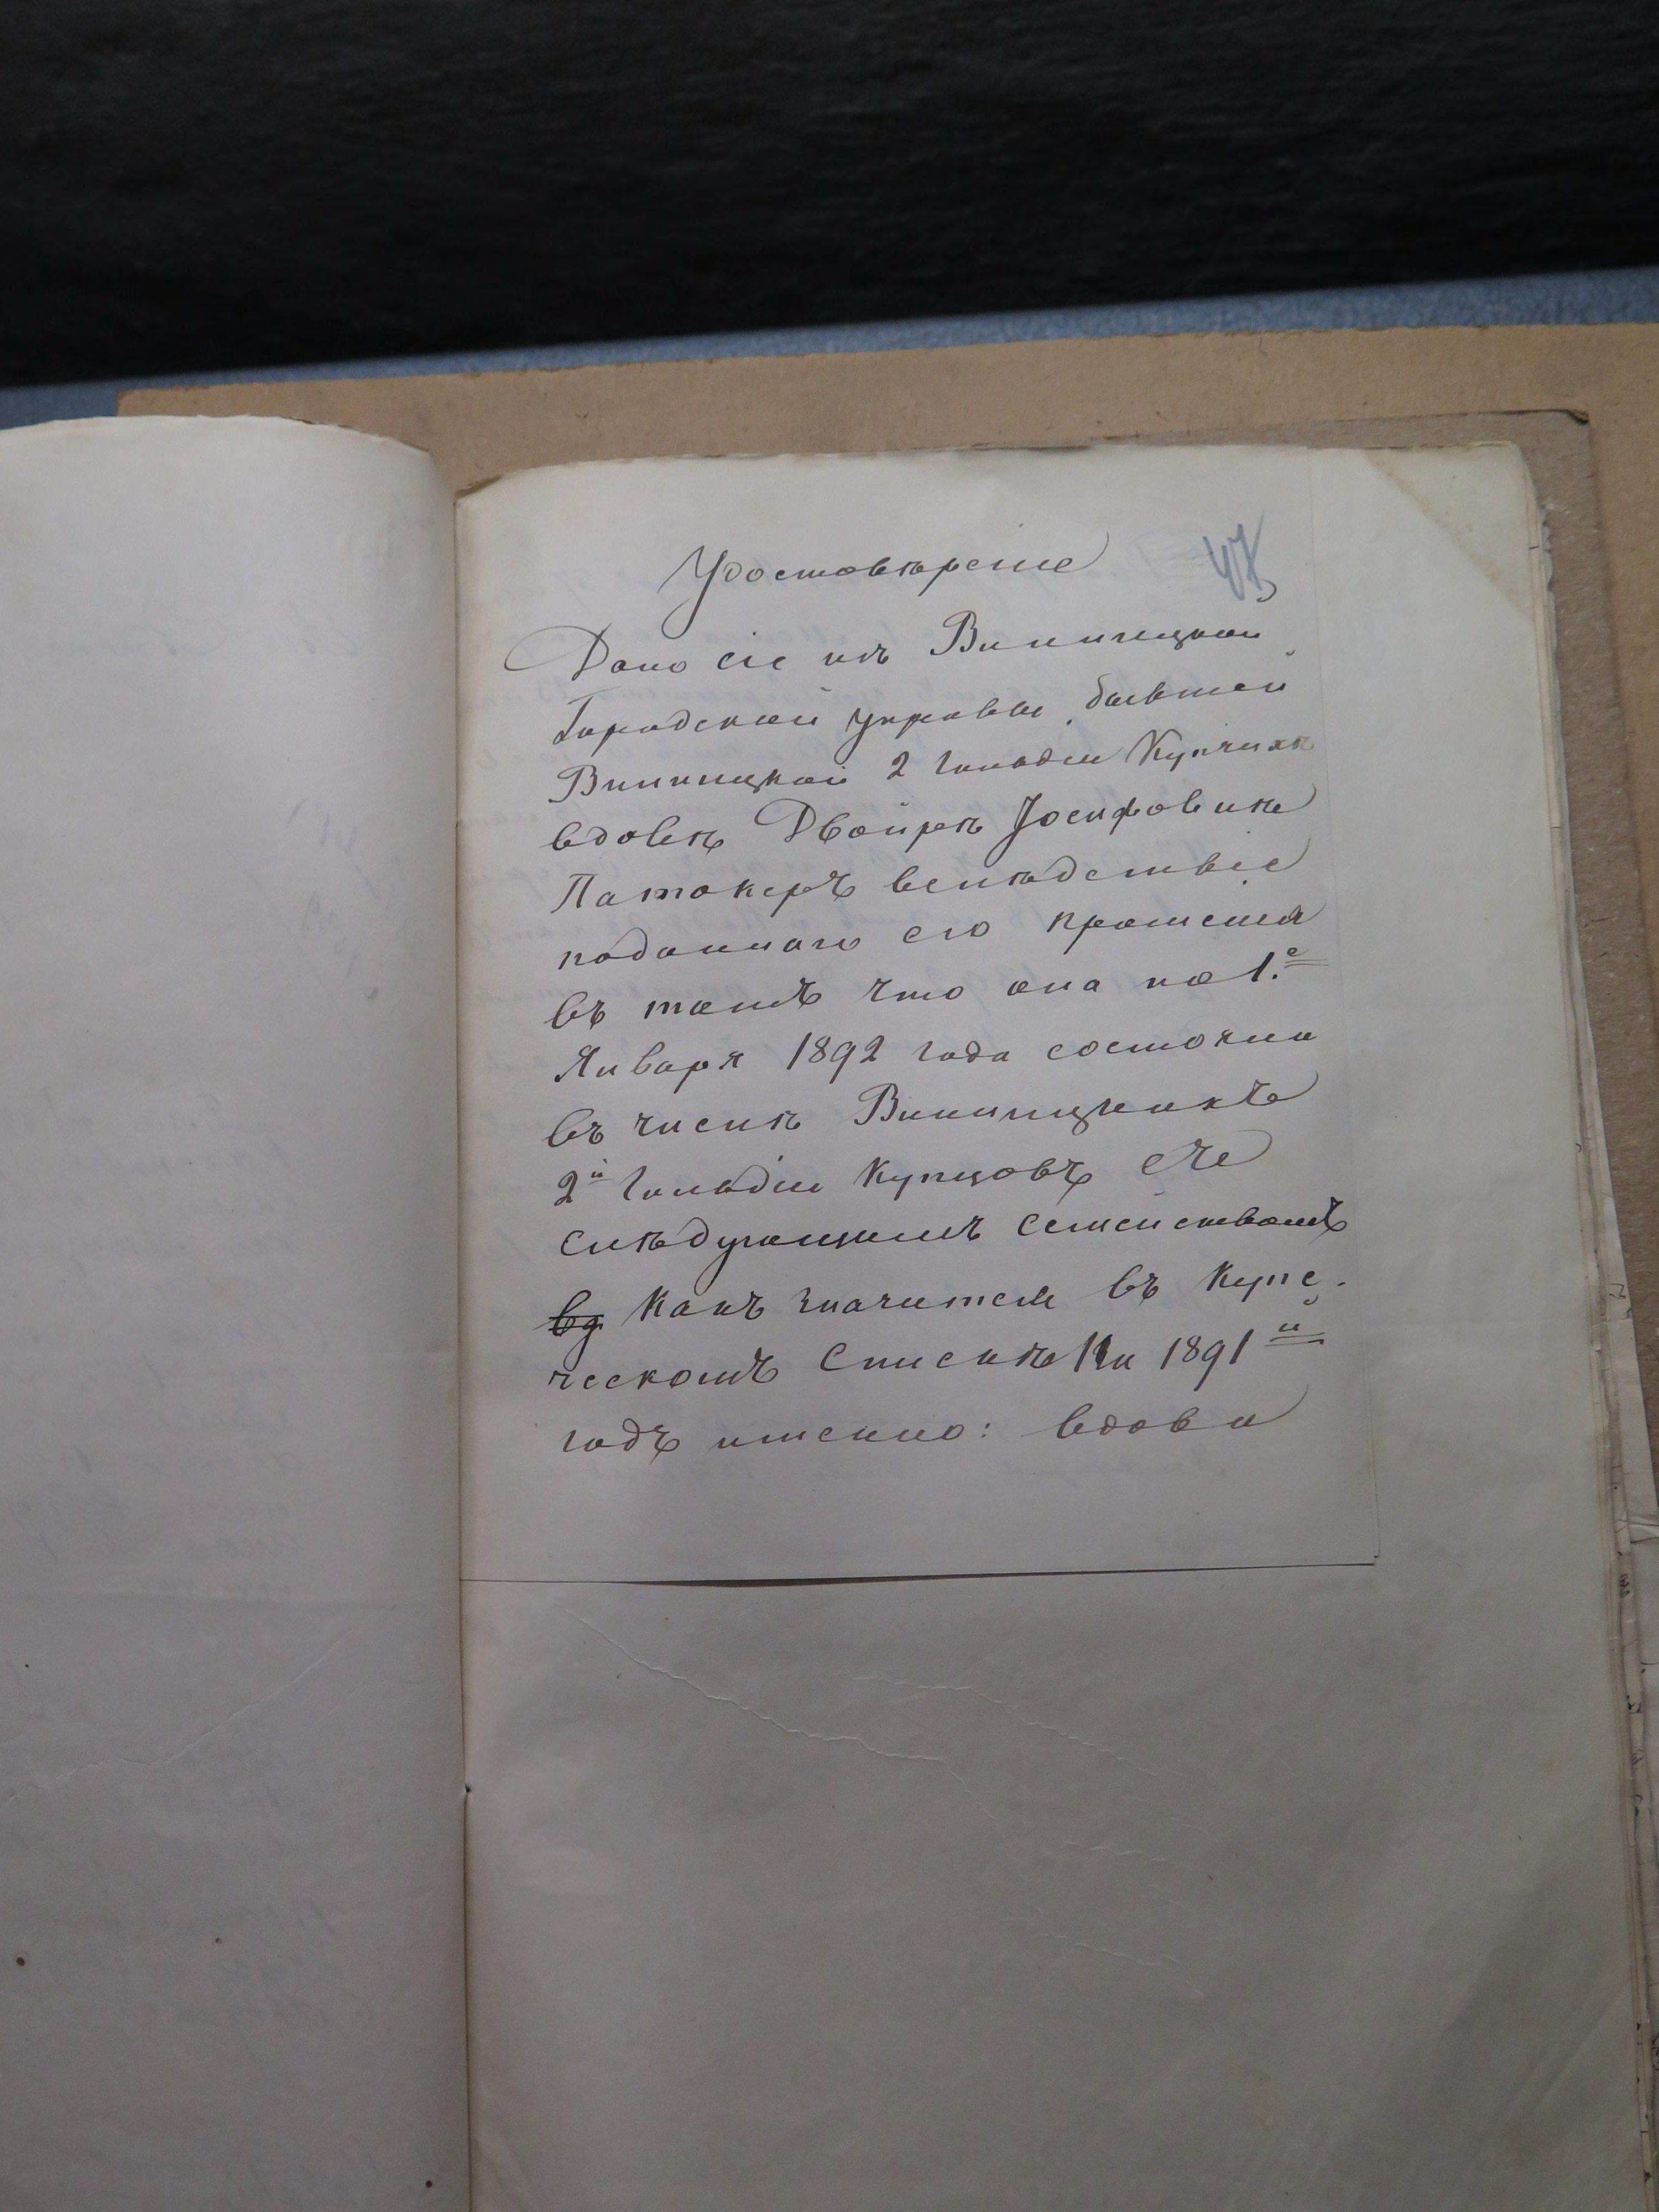 47
Удостовѣреніе
Дано сіе изъ Винницкой
Городской управы бывшей
Винницкой 2 Гильдіи Купчихѣ
вдовѣ Двойрѣ Іосифовнѣ
Патокеръ вслѣдствіе
поданнаго ею прошенія
въ томъ что она по 1.е
Января 1892 года состояла
въ числѣ Винницкихъ
2й Гильдіи Купцовъ съ
слѣдующимъ семействомъ
какъ значится въ Купе-
ческомъ Спискѣ на 1891й
годъ именно: вдова